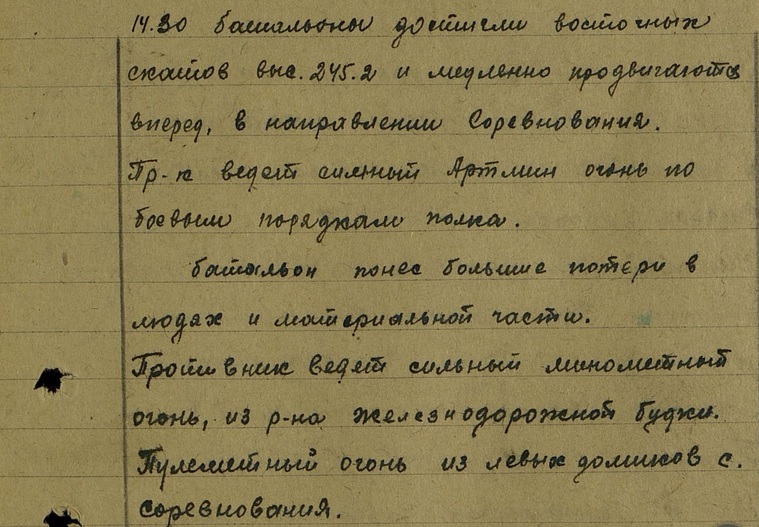 14.30 батальоны достигли восточных
скатов выс. 245.2 и медленно продвигаются
вперед, в направлении Соревнования.
Пр-к ведет сильный Артмин огонь по
боевым порядкам полка.
батальон понес большие потери в
людях и материальной части.
Противник ведет сильный минометный
огонь, из р-на железнодорожной будки.
Пулеметный огонь из левых домиков с.
соревнования.